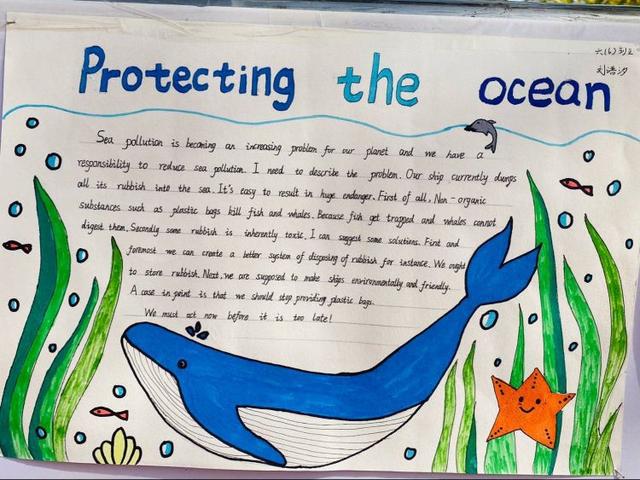 六(6)班
Protecting the ocean
Sea pollution is becoming an increasing problem for our planet and we have a
responsibility to reduce sea pollution. I need to describe the problem. Our ship currently dumps
all its rubbish into the sea. It's easy to result in huge endanger. First of all, Non-organic
substances such as plastic bags kill fish and whales. Because fish get trapped and whales cannot
digest them. Secondly some rubbish is inherently toxic. I can suggest some solutions. First and
foremost we can create a better system of disposing of rubbish for instance. We ought
to store rubbish. Next, we are supposed to make ships environmentally and friendly.
A case in point is that we should stop providing plastic bags.
We must act now before it is too late!